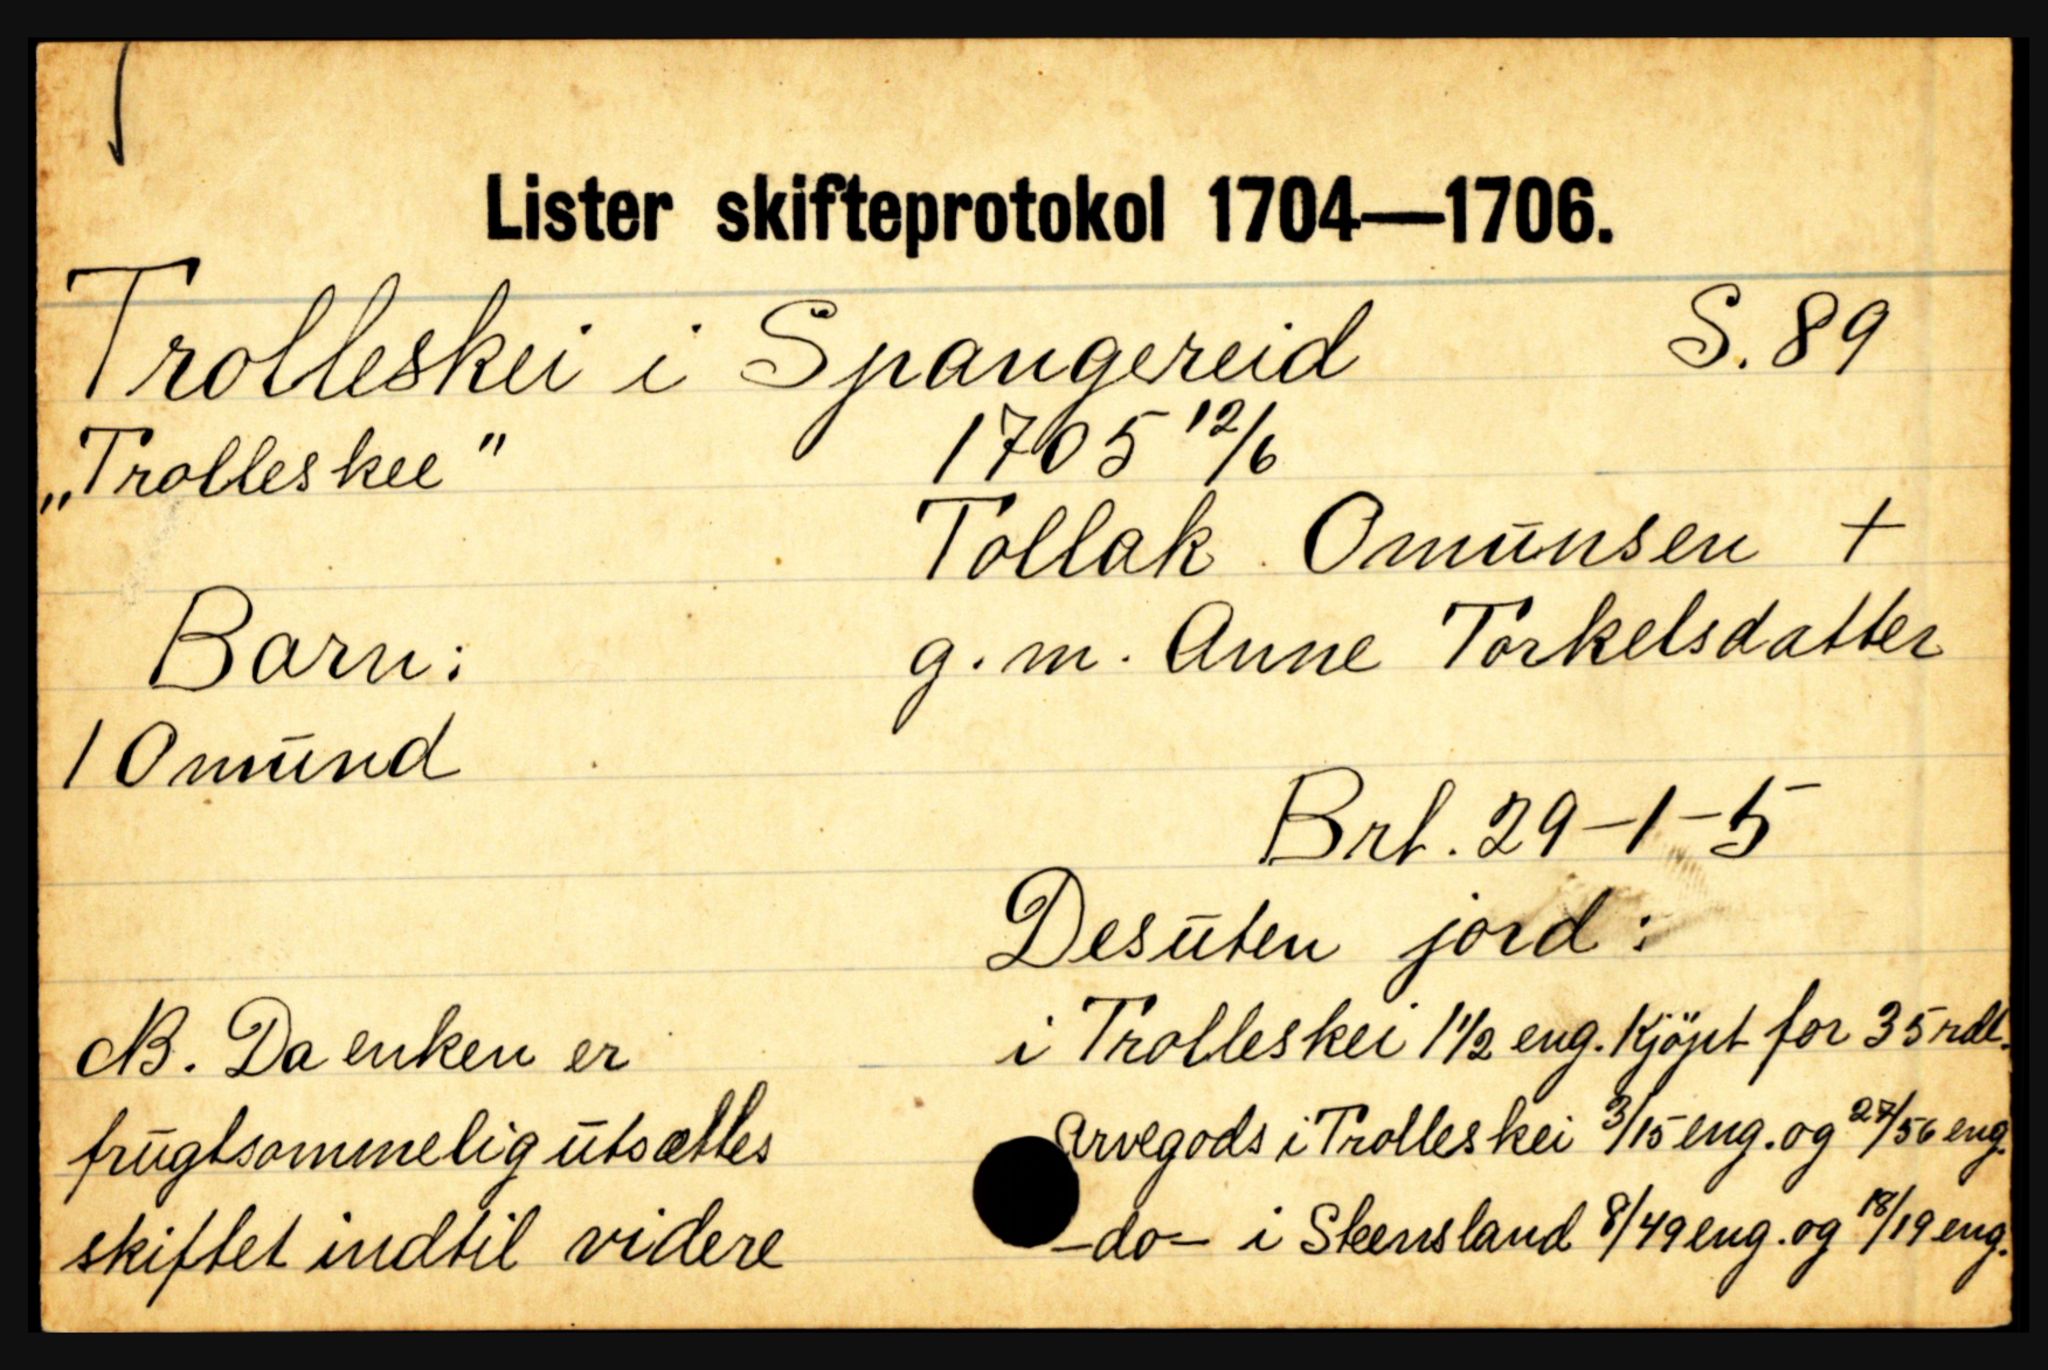 Lister skifteprotokol 1704—1706.
Trolleskei i Spangereid S. 89
„Trolleskee" 1705 12/6
Tollak Omunsen +
Barn: g.m. Anne Torkelsdatter
1 Omund
Brt. 29-1-5
Desuten jord:
NB. Da enken er
frugtsommelig utsættes
skiftet indtil videre
i Trolleskei 1 1/2 eng. Kjöpt for 35 rdl.
Arvegods i Trolleskei 3/15 eng. og 27/56 eng.
-do- i Steensland 8/49 eng. og 18/19 eng.